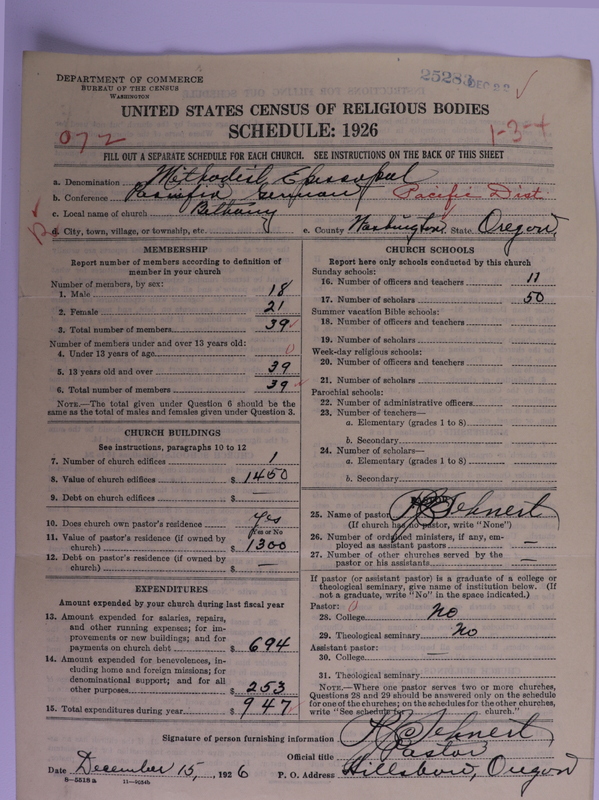 DEPARTMENT OF COMMERCE
BUREAU OF THE CENSUS
WASHINGTON
25283 DEC 22
UNITED STATES CENSUS OF RELIGIOUS BODIES
SCHEDULE: 1926
072
1-3-4
FILL OUT A SEPARATE SCHEDULE FOR EACH CHURCH. SEE INSTRUCTIONS ON THE BACK OF THIS SHEET
a. Denomination Methodist Episcopal
b. Conference Pacific German Pacific Dist
c. Local name of church Bethany
d. City, town, village, or township, etc. e. County Washington State Oregon
MEMBERSHIP
Report number of members according to definition of member in your church
Number of members, by sex:
1. Male 18
2. Female 21
3. Total number of members 39
Number of members under and over 13 years old:
4. Under 13 years of age 0
5. 13 years old and over 39
6. Total number of members 39
NOTE.—The total given under Question 6 should be the same as the total of males and females given under Question 3.
CHURCH BUILDINGS
See instructions, paragraphs 10 to 12
7. Number of church edifices 1
8. Value of church edifices $ 1450
9. Debt on church edifices $ —
10. Does church own pastor's residence Yes
Yes or No
11. Value of pastor's residence (if owned by
church) $ 1300
12. Debt on pastor's residence (if owned by
church) $ —
EXPENDITURES
Amount expended by your church during last fiscal year
13. Amount expended for salaries, repairs,
and other running expenses; for im-
provements or new buildings; and for
payments on church debt $ 694
14. Amount expended for benevolences, in-
cluding home and foreign missions; for
denominational support; and for all
other purposes $ 253
15. Total expenditures during year $ 947
CHURCH SCHOOLS
Report here only schools conducted by this church
Sunday schools:
16. Number of officers and teachers 11
17. Number of scholars 50
Summer vacation Bible schools:
18. Number of officers and teachers
19. Number of scholars
Week-day religious schools:
20. Number of officers and teachers
21. Number of scholars
Parochial schools:
22. Number of administrative officers
23. Number of teachers—
a. Elementary (grades 1 to 8)
b. Secondary
24. Number of scholars—
a. Elementary (grades 1 to 8)
b. Secondary
25. Name of pastor
(If church has no pastor, write "None")
26. Number of ordained ministers, if any, em-
ployed as assistant pastors —
27. Number of other churches served by the
pastor or his assistants —
If pastor (or assistant pastor) is a graduate of a college or
theological seminary, give name of institution below. (If
not a graduate, write "No" in the space indicated.)
Pastor: 0
28. College No
29. Theological seminary No
Assistant pastor:
30. College —
31. Theological seminary
NOTE.—Where one pastor serves two or more churches,
Questions 28 and 29 should be answered only on the schedule
for one of the churches; on the schedules for the other churches,
write "See schedule for church."
Signature of person furnishing information
Official title Pastor
Date December 15, , 1926 P. O. Address Hillsboro, Oregon
8-5518a 11—9254h